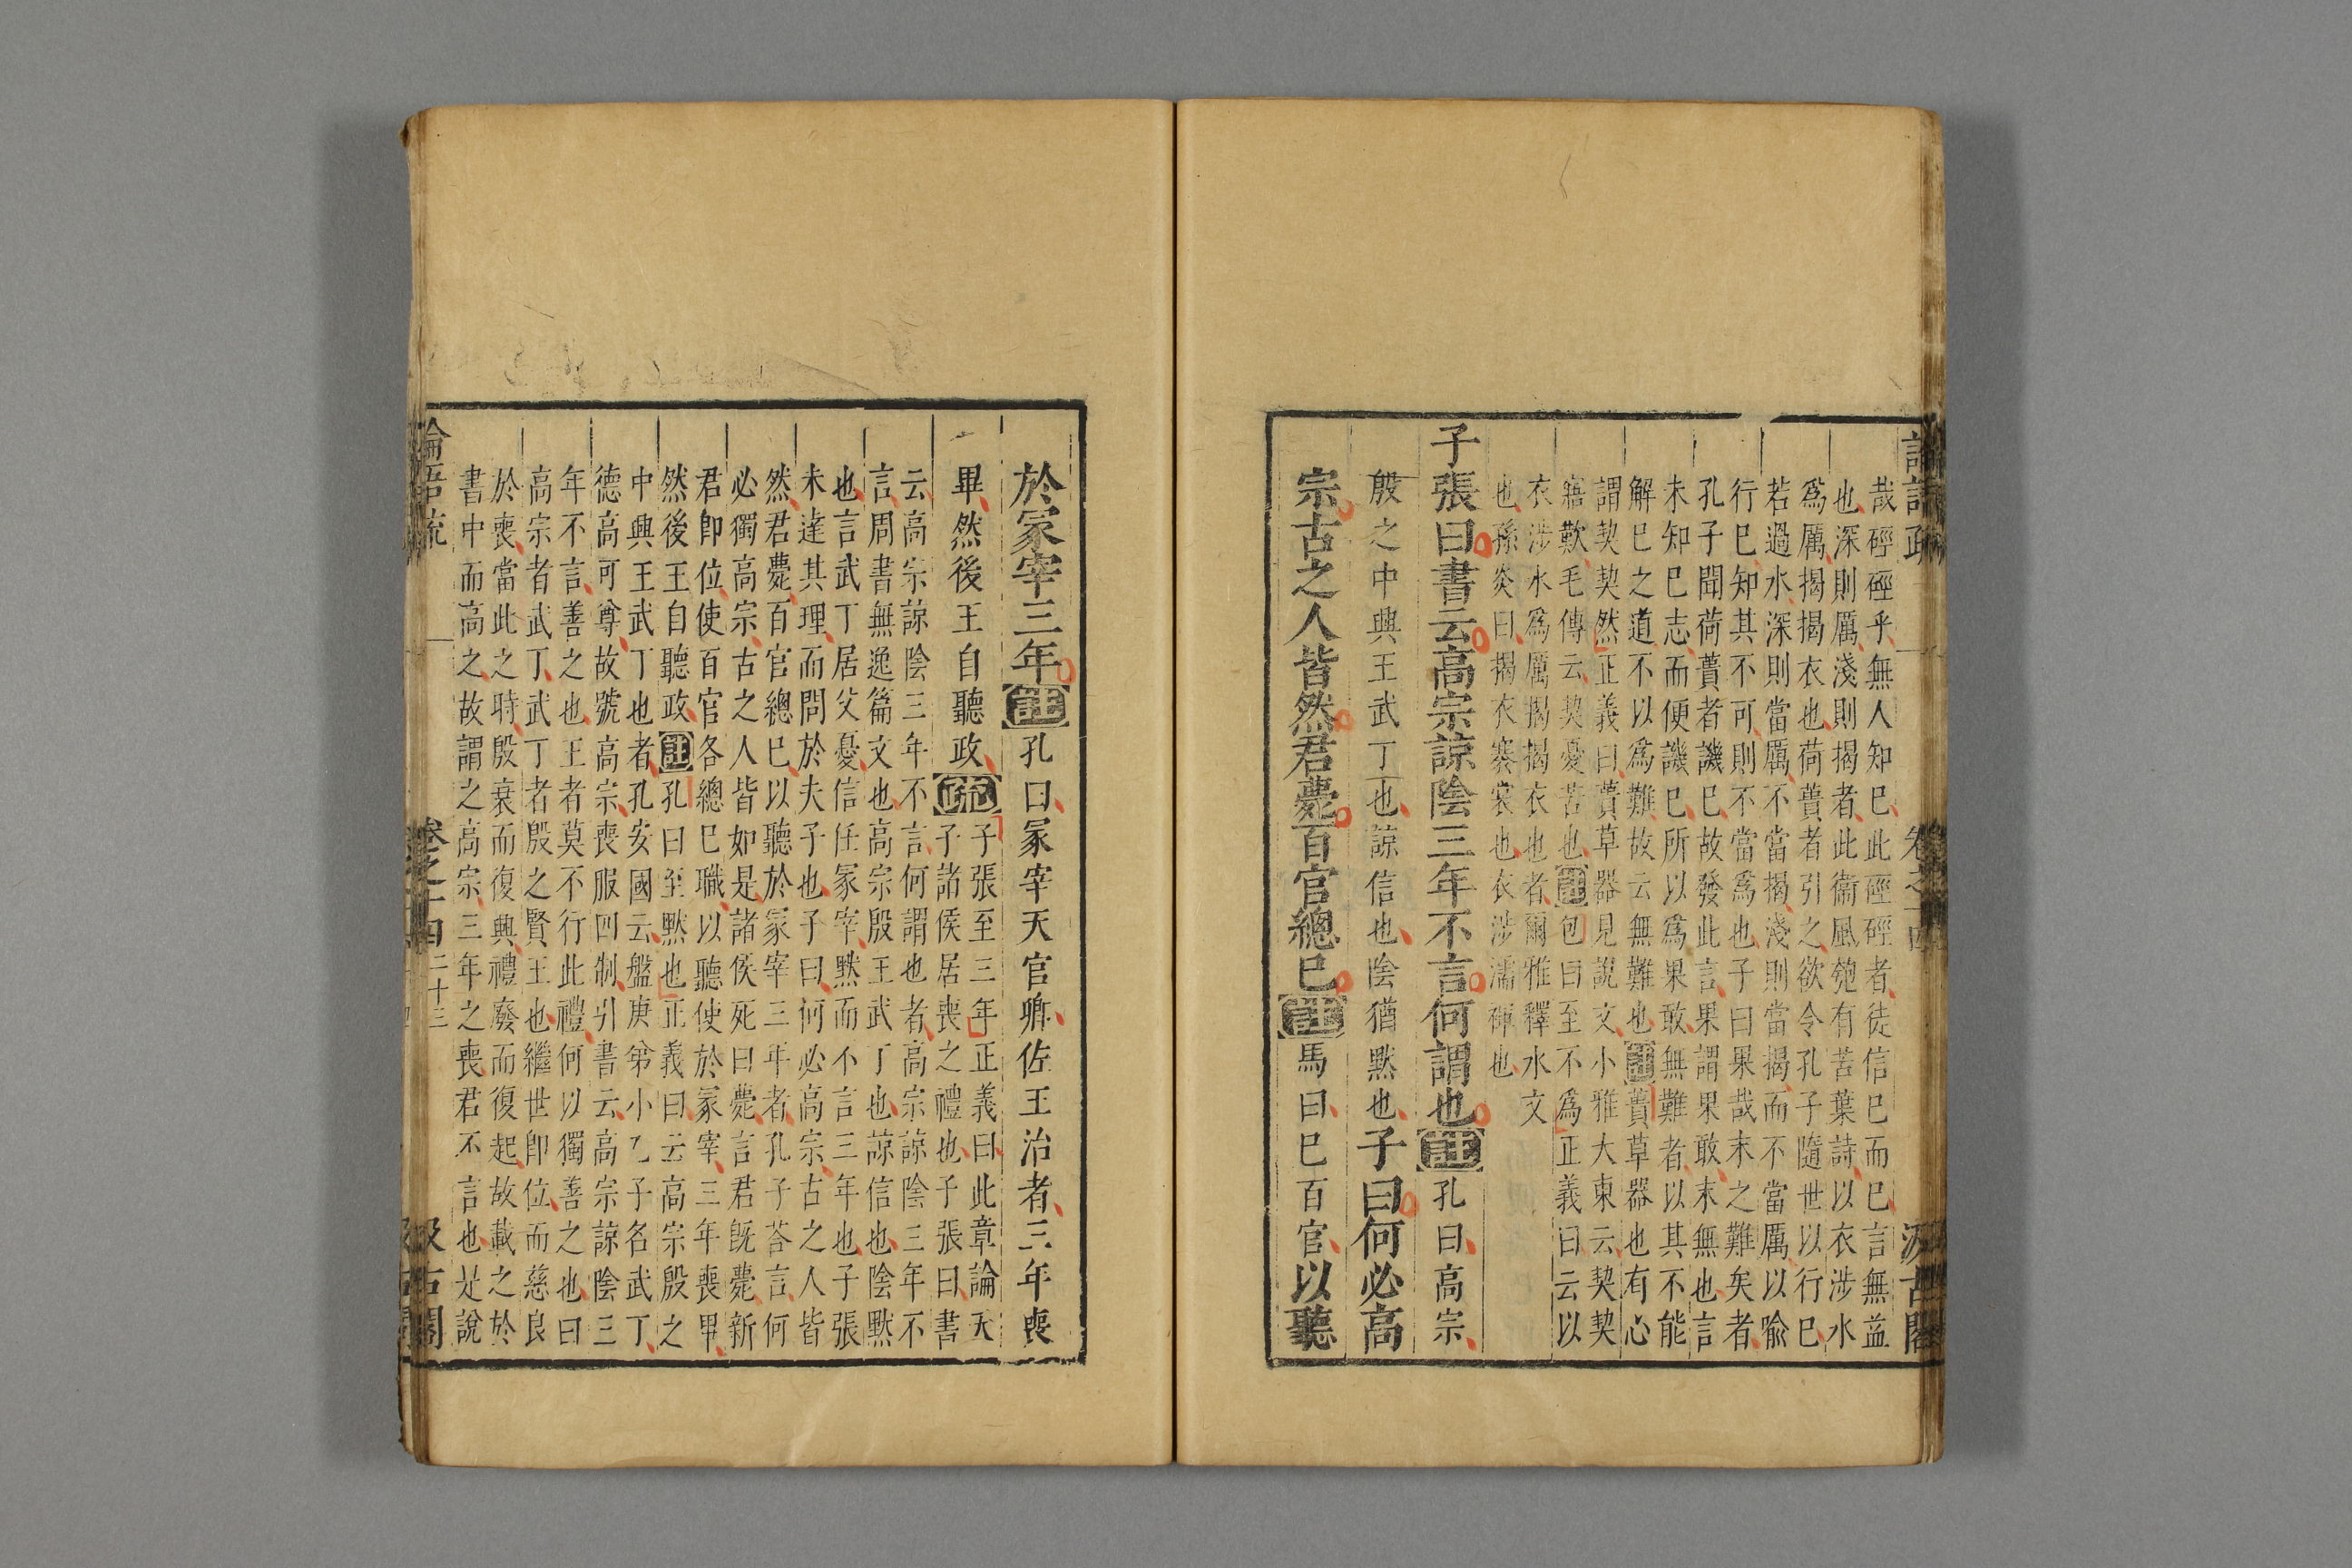 論語疏
卷之十四
汲古閣
哉硜硜乎無人知已此硜硜者徒信已而已言無益
也深則厲淺則揭者此衞風匏有苦葉詩以衣涉水
爲厲揭揭衣也荷蕢者引之欲令孔子隨世以行已
若過水深則當厲不當揭淺則當揭而不當厲以喩
行已知其不可則不當爲也子曰果哉末之難矣者
孔子聞荷蕢者譏已故發此言果謂果敢末無也言
未知已志而便譏已所以爲果敢無難者以其不能
解已之道不以爲難故云無難也註蕢草器也有心
謂契契然正義曰蕢草器見說文小雅大東云契契
寤歎毛傳云契憂苦也註包曰至不爲正義曰云以
衣涉水爲厲揭揭衣也者爾雅釋水文
也孫炎曰揭衣褰裳也衣涉濡褌也
子張曰書云高宗諒陰三年不言何謂也註孔曰高宗
殷之中興王武丁也諒信也陰猶默也子曰何必高
宗古之人皆然君薨百官總已註馬曰已百官以聽
於冢宰三年註孔曰冢宰天官卿佐王治者三年喪
畢然後王自聽政疏子張至三年正義曰此章論天
子諸侯居喪之禮也子張曰書
云高宗諒陰三年不言何謂也者高宗諒陰三年不
言周書無逸篇文也高宗殷王武丁也諒信也陰默
也言武丁居父憂信任冢宰默而不言三年也子張
未達其理而問於夫子也子曰何必高宗古之人皆
然君薨百官總已以聽於冢宰三年者孔子荅言何
必獨高宗古之人皆如是諸侯死曰薨言君旣薨新
君卽位使百官各總已職以聽使於冢宰三年喪畢
然後王自聽政註孔曰至默也正義曰云高宗殷之
中興王武丁也者孔安國云盤庚弟小乙子名武丁
德高可尊故號高宗喪服四制引書云高宗諒陰三
年不言善之也王者莫不行此禮何以獨善之也曰
高宗者武丁武丁者殷之賢王也繼世卽位而慈良
於喪當此之時殷衰而復興禮廢而復起故載之於
書中而高之故謂之高宗三年之喪君不言也是說
論語疏
卷之十四
二十三
汲古閣